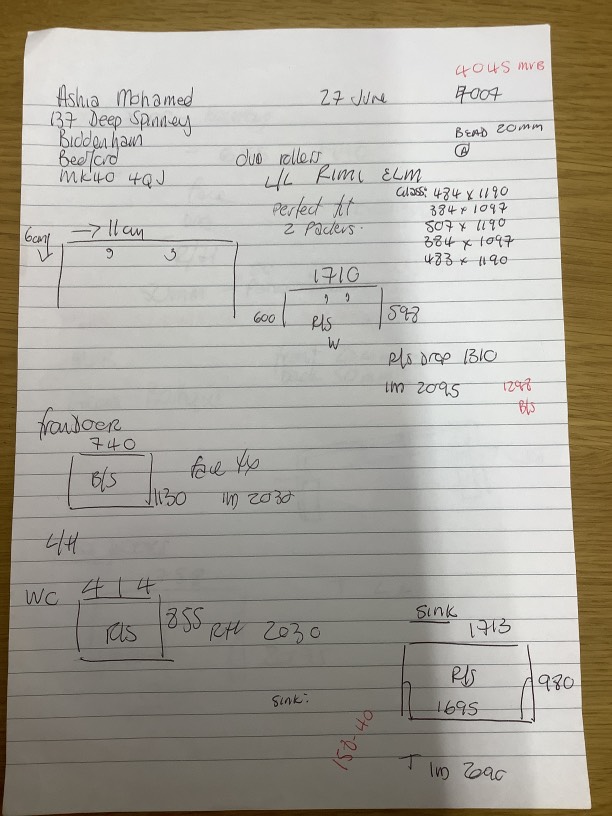 4045 MVB
Ashia Mohamed
27 June
7007
137 Deep Spinney
Biddenham
BEAD 20mm
A
Bedford
duo rollers
MK40 4QJ
L/L RIMI ELM
Glass: 484 x 1190
384 x 1097
507 x 1190
384 x 1097
483 x 1190
Perfect fit
2 Packers.
6cm
→ 11cm
1710
600
R/S
598
W
R/S Drop 1310
1m 2095
1298
B/S
740
B/S
1130
Face fix
1m 2030
L/H
WC
414
R/S
855
R/H 2030
Sink
1713
R/S
980
1695
Sink:
150-40
T 1m 2090